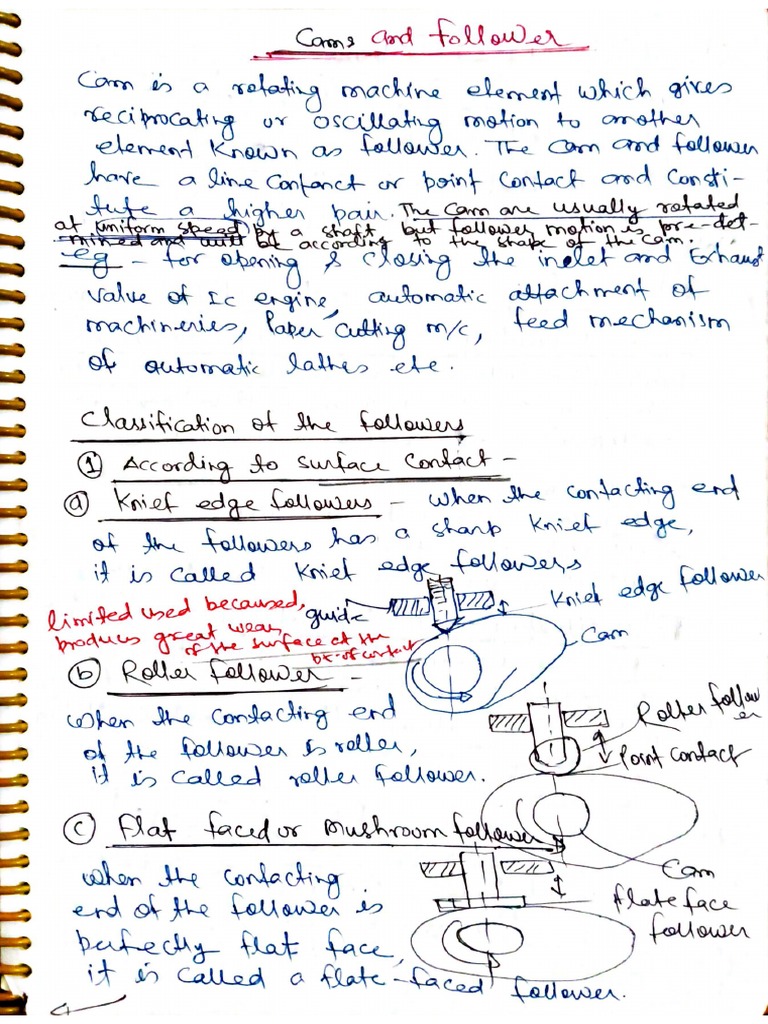 Cams and follower
Cam is a rotating machine element which gives
reciprocating or oscillating motion to another
element known as follower. The Cam and follower
have a line Contanct or point Contact and Consti-
tute a higher pair. The Cam are usually rotated
at uniform speed by a shaft but follower motion is pre-det-
mined and will be according to the shape of the cam.
eg - for opening & closing the inelet and Exhaust
value of Ic engine, automatic attachment of
machineries, Paper Cutting m/c, feed mechanism
of automatic lathes etc.
Classification of the followers
① According to surface Contact -
ⓐ Knief edge followers - when the contacting end
of the followers has a sharp Knief edge,
it is called Knief edge followers
limited used becaused,
produces great wear
of the surface at the
of contact
guide
Knief edge follower
Cam
ⓑ Roller follower -
when the contacting end
of the follower is roller,
it is called roller follower.
Roller follower
Point contact
Cam
ⓒ Flat faced or mushroom follower
when the contacting
end of the follower is
perfectly flat face,
it is called a flate-faced follower.
flate face
follower